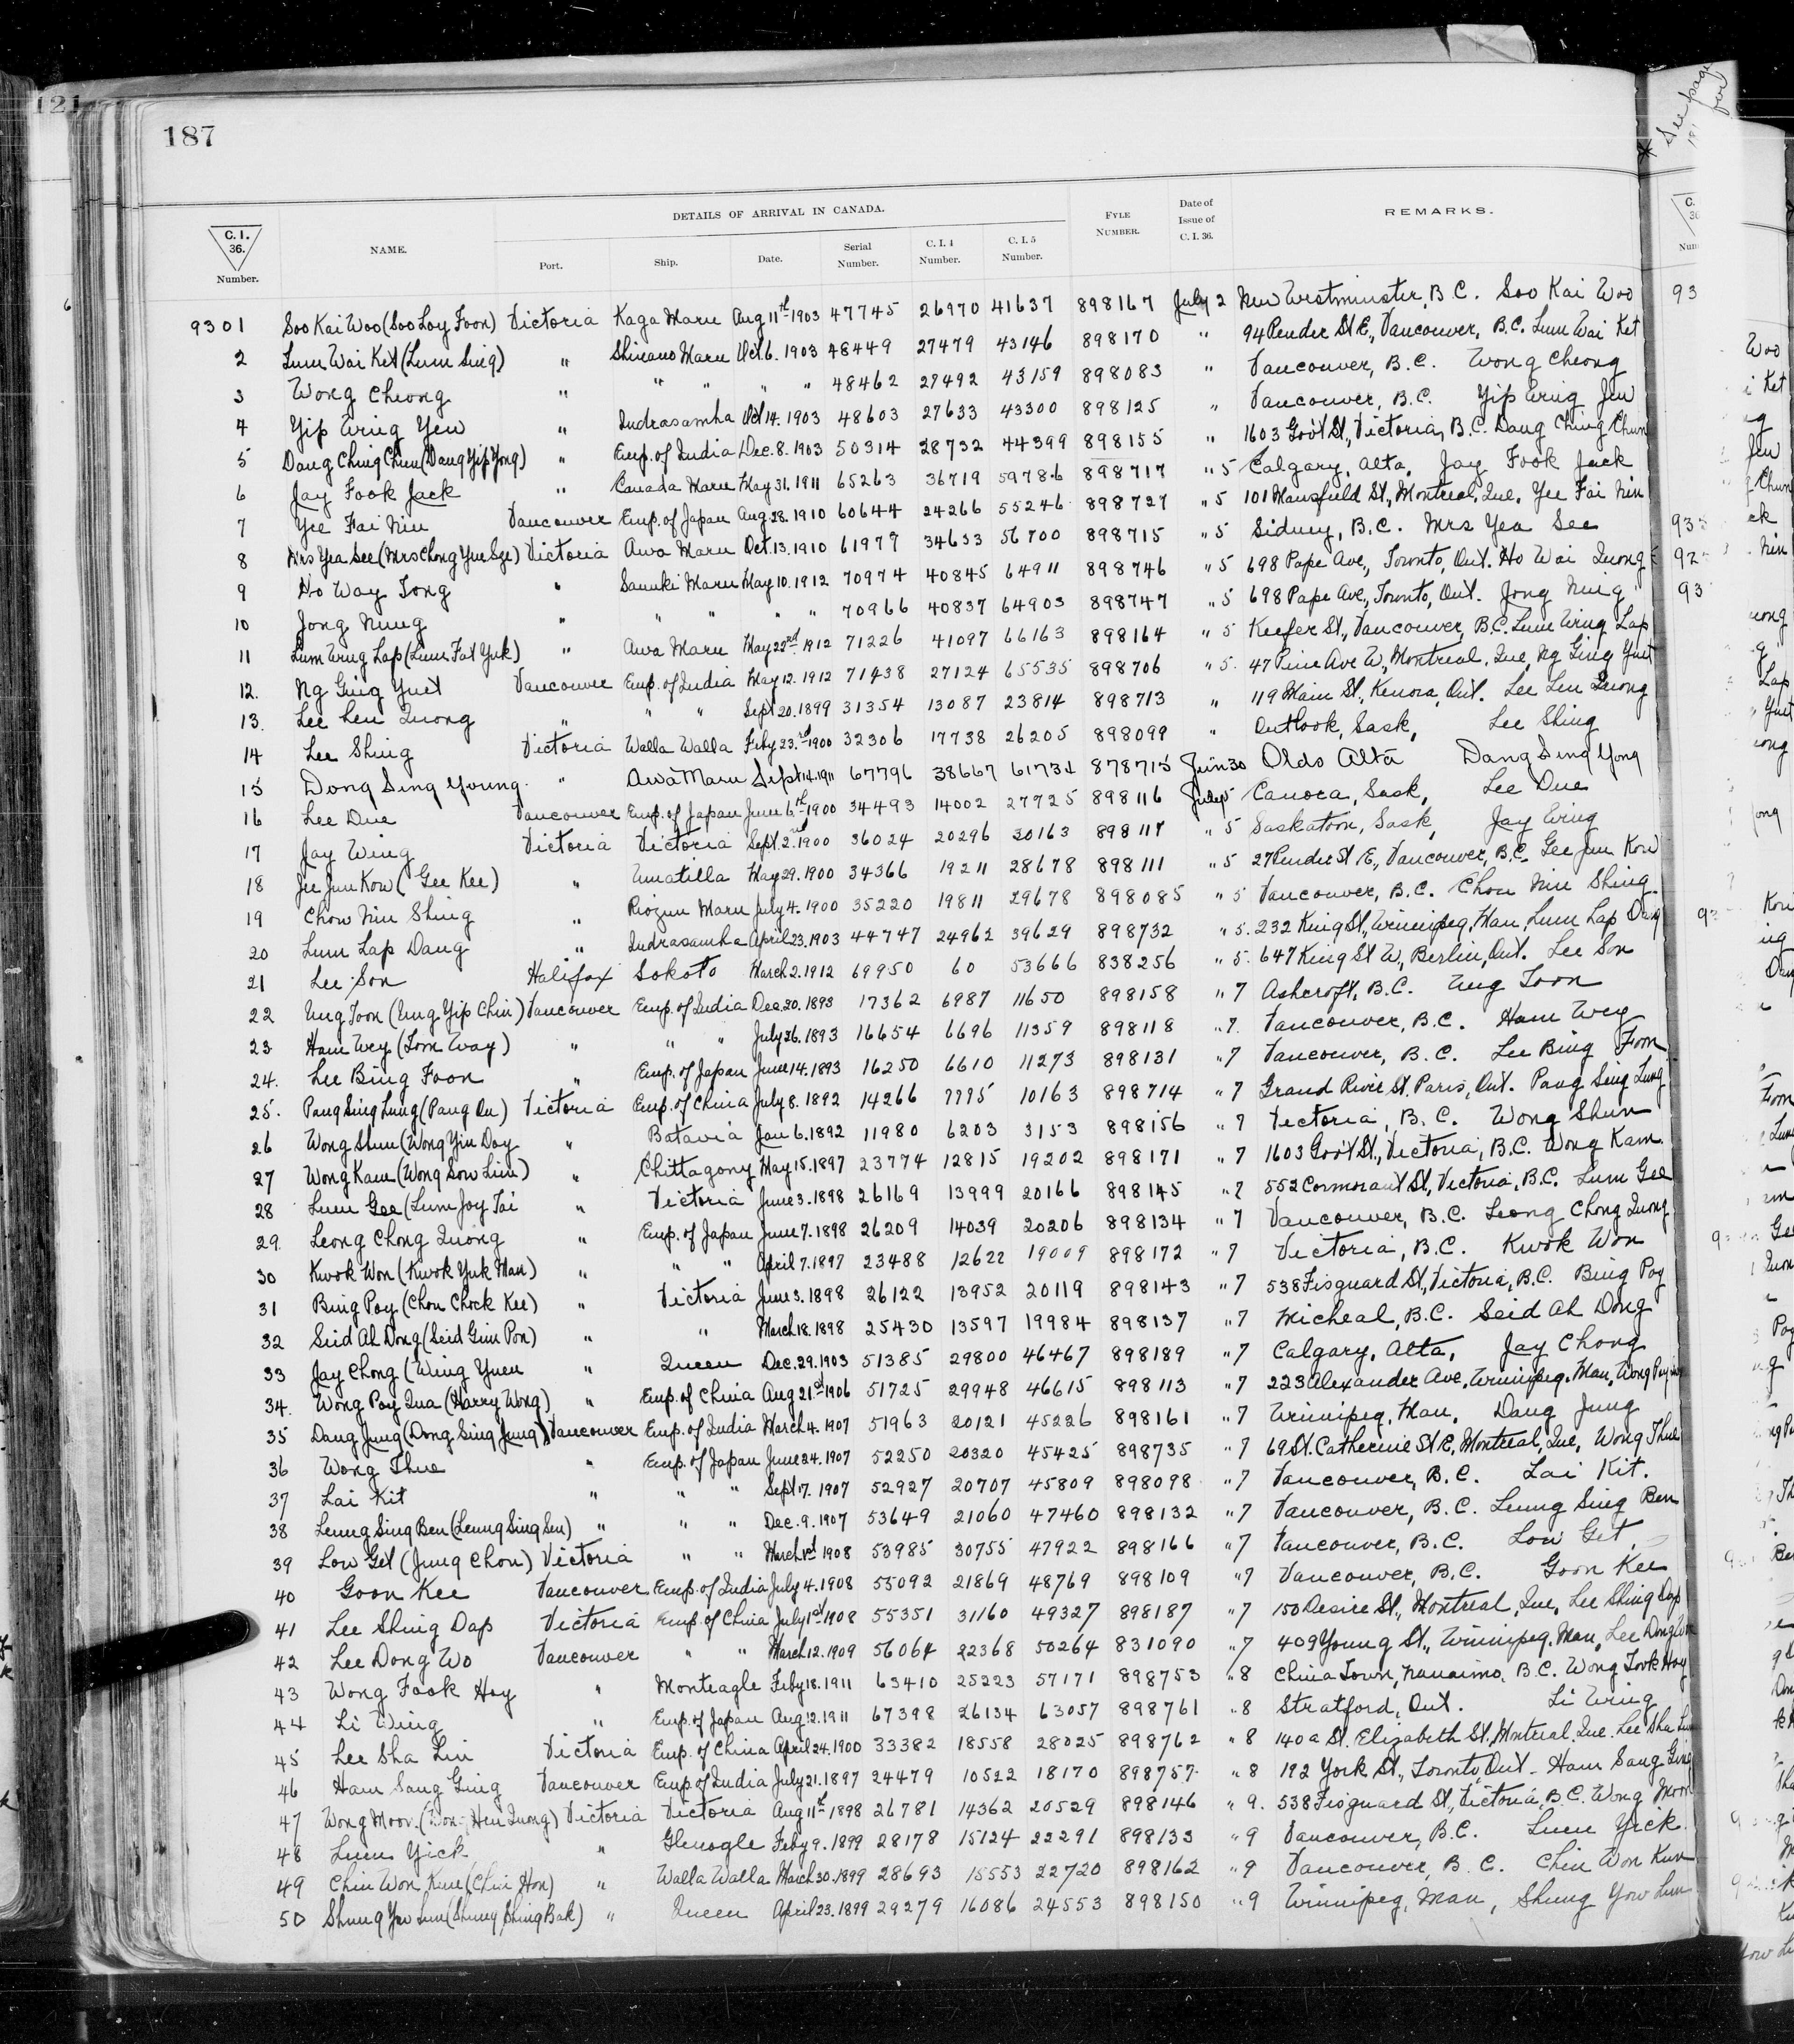 121
187
DETAILS OF ARRIVAL IN CANADA.
C. I. 36. Number. NAME. Port. Ship. Date. Serial Number. C. I. 4 Number. C. I. 5 Number. FYLE NUMBER. Date of Issue of C. I. 36. REMARKS.
9301 Soo Kai Woo (Soo Loy Foon) Victoria Kaga Maru Aug 11th 1903 47745 26970 41637 898167 July 2 New Westminster, B.C. Soo Kai Woo
2 Lum Wai Ket (Lum Sing) " Shinano Maru Oct. 6. 1903 48449 27479 43146 898170 " 94 Pender St E, Vancouver, B.C. Lum Wai Ket
3 Wong Cheong " " " " " 48462 27492 43159 898083 " Vancouver, B.C. Wong Cheong
4 Yip Wing Yew " Indrasamha Oct 14. 1903 48603 27633 43300 898125 " Vancouver, B.C. Yip Wing Jew
5 Dang Ching Chun (Dang Yip Yong) " Emp. of India Dec. 8. 1903 50314 28732 44399 898155 " 1603 Gov't St., Victoria, B.C. Dang Ching Chun
6 Jay Fook Jack " Canada Maru May 31. 1911 65263 36719 59786 898717 " 5 Calgary, Alta, Jay Fook Jack
7 Yee Fai Nin Vancouver Emp. of Japan Aug 28. 1910 60644 24266 55246 898727 " 5 101 Mansfield St., Montreal, Que, Yee Fai Nin
8 Mrs Yea See (Mrs Chong Yue Sze) Victoria Awa Maru Oct. 13. 1910 61979 34633 56700 898715 " 5 Sidney, B.C. Mrs Yea See
9 Ho Way Tong " Sanuki Maru May 10. 1912 70974 40845 64911 898746 " 5 698 Pape Ave., Toronto, Ont. Ho Wai Quong
10 Jong Nung " " " " " 70966 40837 64903 898747 " 5 698 Pape Ave., Toronto, Ont. Jong Ning
11 Lum Wing Lap (Lum Fat Yuk) " Awa Maru May 22nd 1912 71226 41097 66163 898164 " 5 Keefer St., Vancouver, B.C. Lum Wing Lap
12. Ng Ging Yuet Vancouver Emp. of India May 12. 1912 71438 27124 65535 898706 " 5. 47 Pine Ave W, Montreal, Que, Ng Ging Yuet
13. Lee Len Quong " " " Sept 20. 1899 31354 13087 23814 898713 " 119 Main St, Kenora, Ont. Lee Len Quong
14 Lee Shing Victoria Walla Walla Feby 23rd 1900 32306 17738 26205 898099 " Outlook, Sask, Lee Shing
15 Dong Sing Young " Awa Maru Sept 14. 1911 67796 38667 61731 878715 Jun 30 Olds Alta Dang Sing Yong
16 Lee Due Vancouver Emp. of Japan June 6th 1900 34493 14002 27725 898116 July 5 Canora, Sask, Lee Due
17 Jay Wing Victoria Victoria Sept. 2nd 1900 36024 20296 30163 898117 " 5 Saskatoon, Sask, Jay Wing
18 Jee Jun Kow (Gee Kee) " Umatilla May 29. 1900 34366 19211 28678 898111 " 5 27 Pender St E, Vancouver, B.C. Gee Jun Kow
19 Chow Nin Shing " Riojun Maru July 4. 1900 35220 19811 29678 898085 " 5 Vancouver, B.C. Chou Nin Shing.
20 Lum Lap Dang " Indrasamha April 23. 1903 44747 24962 39629 898732 " 5. 232 King St, Winnipeg, Man, Lum Lap Dang
21 Lee Son Halifax Sokoto March 2. 1912 69950 60 53666 838256 " 5. 647 King St W, Berlin, Ont. Lee Son
22 Ung Toon (Ung Yip Chin) Vancouver Emp. of India Dec. 20. 1893 17362 6987 11650 898158 " 7 Ashcroft, B.C. Ung Toon
23 Ham Wey (Tom Way) " " " July 26. 1893 16654 6696 11359 898118 " 7. Vancouver, B.C. Ham Wey
24. Lee Bing Foon " Emp. of Japan June 14. 1893 16250 6610 11273 898131 " 7 Vancouver, B.C. Lee Bing Foon
25. Pang Sing Lung (Pang On) Victoria Emp. of China July 8. 1892 14266 7795 10163 898714 " 7 Grand River St. Paris, Ont. Pang Sing Lung
26 Wong Shun (Wong Yin Doy " Batavia Jan 6. 1892 11980 6203 3153 898156 " 7 Victoria, B.C. Wong Shun
27 Wong Kam (Wong Sow Lim) " Chittagong May 15. 1897 23774 12815 19202 898171 " 7 1603 Gov't St., Victoria, B.C. Wong Kam
28 Lum Gee (Lum Joy Tai " Victoria June 3. 1898 26169 13999 20166 898145 " 7 552 Cormorant St, Victoria, B.C. Lum Gee
29. Leong Chong Quong " Emp. of Japan June 7. 1898 26209 14039 20206 898134 " 7 Vancouver, B.C. Leong Chong Quong
30 Kwok Won (Kwok Yuk Man) " " " April 7. 1897 23488 12622 19009 898172 " 7 Victoria, B.C. Kwok Won
31 Bing Poy (Chou Chock Kee) " Victoria June 3. 1898 26122 13952 20119 898143 " 7 538 Fisguard St, Victoria, B.C. Bing Poy
32 Seid Ah Dong (Seid Gim Pon) " " March 18. 1898 25430 13597 19984 898137 " 7 Micheal, B.C. Seid Ah Dong
33 Jay Chong (Wing Yuen " Queen Dec. 29. 1903 51385 29800 46467 898189 " 7 Calgary, Alta, Jay Chong
34. Wong Poy Qua (Harry Wong) " Emp. of China Aug 21st 1906 51725 29948 46615 898113 " 7 223 Alexander Ave, Winnipeg, Man, Wong Poy
35 Dang Jung (Dong Sing Jung) Vancouver Emp. of India March 4. 1907 51963 20121 45226 898161 " 7 Winnipeg, Man, Dang Jung
36 Wong Thue " Emp. of Japan June 24. 1907 52250 20320 45425 898735 " 7 69 St. Catherine St E, Montreal, Que, Wong Thue
37 Lai Kit " " " Sept 17. 1907 52927 20707 45809 898098 " 7 Vancouver, B.C. Lai Kit.
38 Leung Sing Ben (Leung Sing Sen) " " " Dec. 9. 1907 53649 21060 47460 898132 " 7 Vancouver, B.C. Leung Sing Ben
39 Low Get (Jung Chow) Victoria " " March 1908 53985 30755 47922 898166 " 7 Vancouver, B.C. Low Get
40 Goon Kee Vancouver Emp. of India July 4. 1908 55092 21869 48769 898109 " 7 Vancouver, B.C. Goon Kee
41 Lee Shing Dap Victoria Emp. of China July 1st 1908 55351 31160 49327 898187 " 7 150 Desire St., Montreal, Que, Lee Shing Dap
42 Lee Dong Wo Vancouver " " March 12. 1909 56064 22368 50264 831090 " 7 409 Young St., Winnipeg, Man, Lee Dong
43 Wong Fook Hoy " Monteagle Feby 18. 1911 63410 25223 57171 898753 " 8 China Town, Nanaimo, B.C. Wong Fook Hoy
44 Li Wing " Emp. of Japan Aug 12. 1911 67398 26134 63057 898761 " 8 Stratford, Ont. Li Wing
45 Lee Sha Lin Victoria Emp. of China April 24. 1900 33382 18558 28025 898762 " 8 140a St. Elizabeth St, Montreal, Que. Lee Sha Lin
46 Ham Sang Ging Vancouver Emp. of India July 21. 1897 24479 10522 18170 898757 " 8 192 York St., Toronto, Ont. Ham Sang Ging
47 Wong Moon (Wong Hen Quong) Victoria Victoria Aug 11th 1898 26781 14362 20529 898146 " 9. 538 Fisguard St, Victoria, B.C. Wong Moon
48 Lum Yick " Glenogle Feby 9. 1899 28178 15124 22291 898133 " 9 Vancouver, B.C. Lum Yick
49 Chin Won Kun (Chin Hon) " Walla Walla March 30. 1899 28693 15553 22720 898162 " 9 Vancouver, B.C. Chin Won Kun
50 Shung Yow Lun (Shung Shing Bak) " Queen April 23. 1899 29279 16086 24553 898150 " 9 Winnipeg, Man, Shung Yow Lun
* See page
for